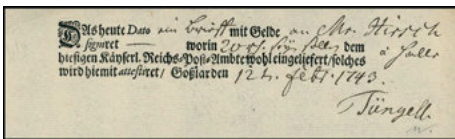 DAs heute Dato ein brieff mit Gelde an Mr. Hirsch
signiret — worin 20 rh. dem à Halle
hiesigen Käyserl. Reichs-Post-Ambte wohl eingeliefert/ solches
wird hiemit attestiret/ Goßlar den 12t. Febr. 1743.
Tüngell.